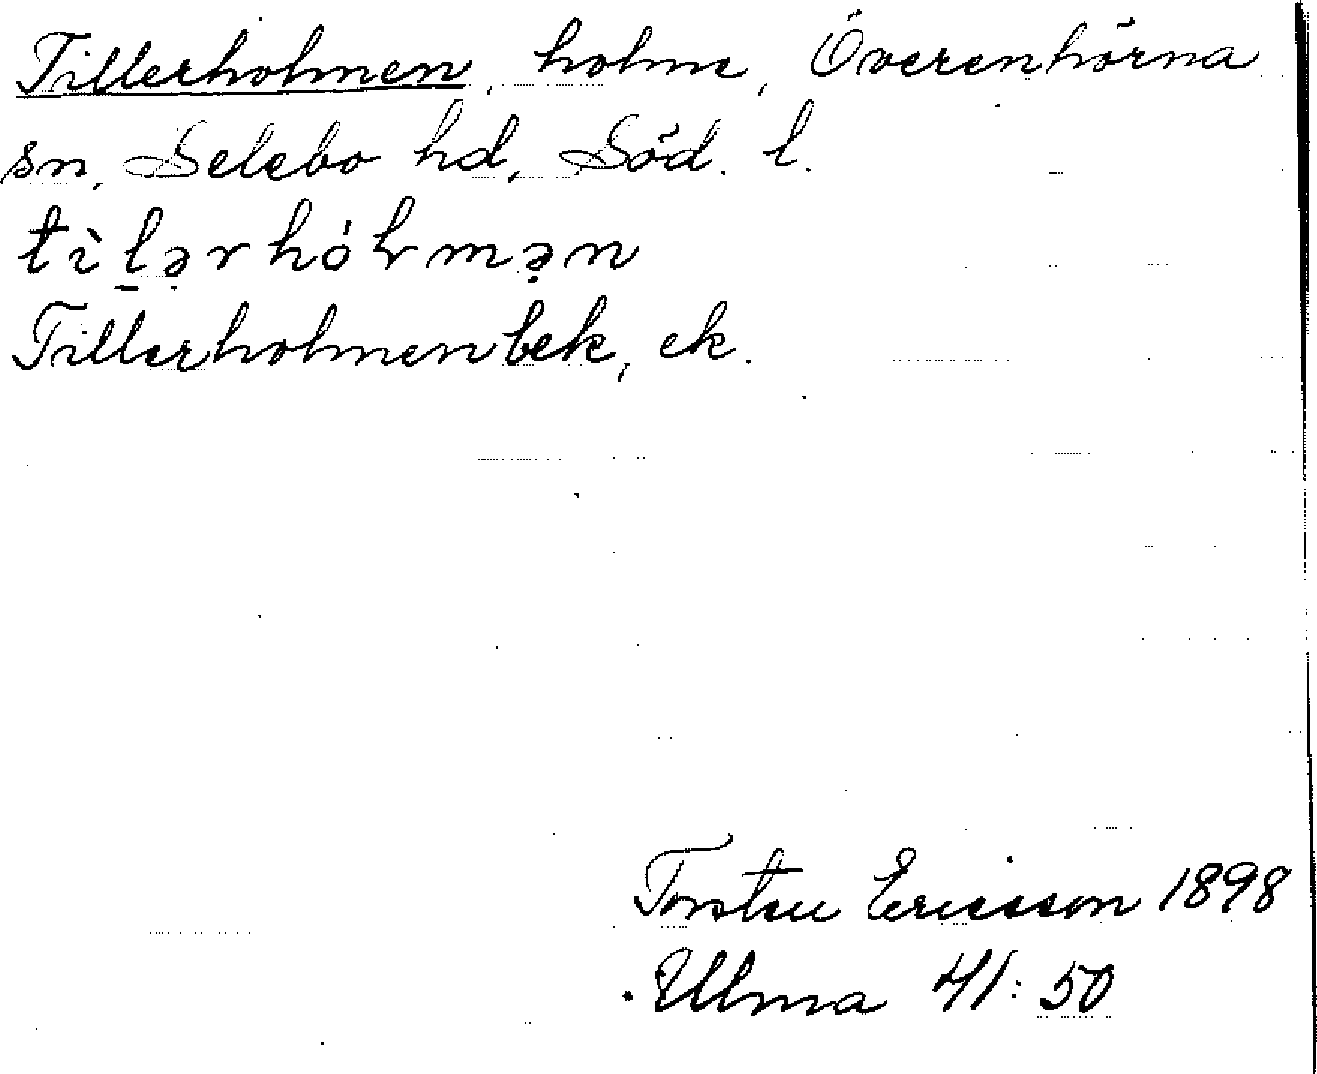 Tillerholmen, holme, Överenhörna
sn, Selebo hd, Söd. l.
tìl̠ərhólmən
Tillerholmen bek, ek.
Torsten Ericsson 1898
Ulma 41:50